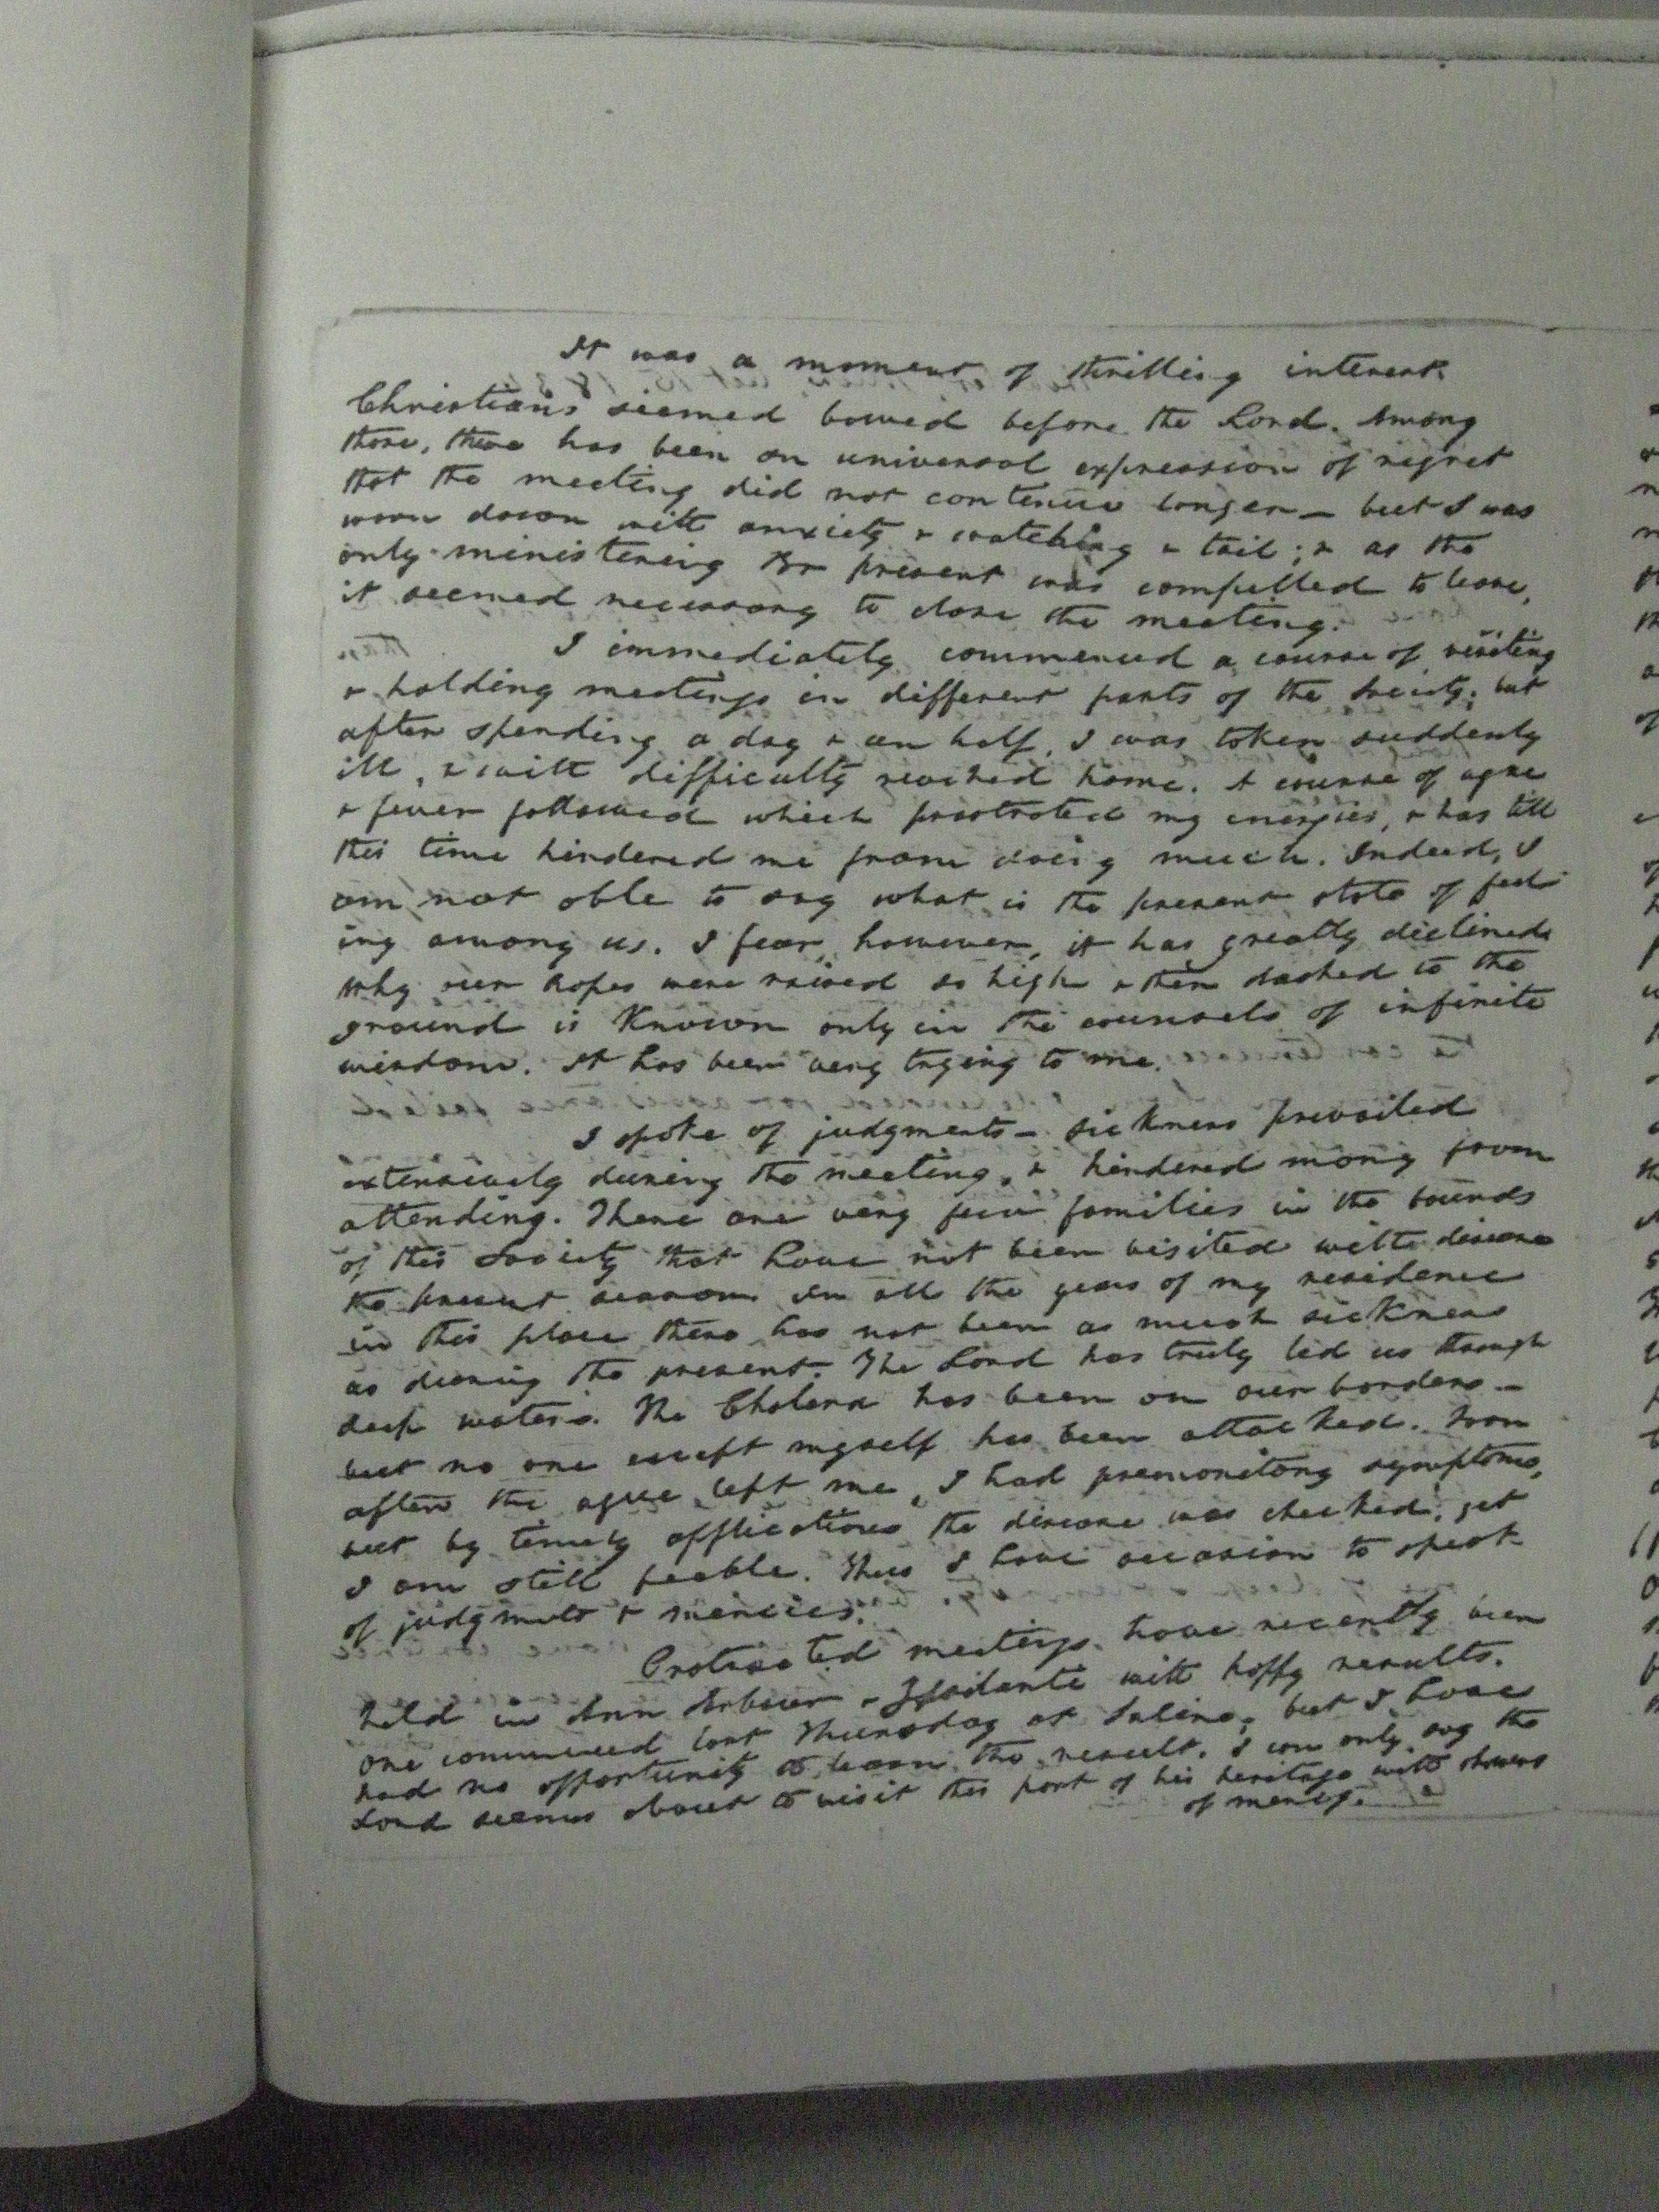 It was a moment of thrilling interest.
Christians seemed bowed before the Lord. Among
those, there has been an universal expression of regret
that the meeting did not continue longer — but I was
worn down with anxiety & watching & toil; & as the
only ministering Br present was compelled to leave,
it seemed necessary to close the meeting.
I immediately commenced a course of visiting
& holding meetings in different parts of the Society; but
after spending a day & an half, I was taken suddenly
ill, & with difficulty reached home. A course of ague
& fever followed which prostrated my energies, & has till
this time hindered me from doing much. Indeed, I
am not able to say what is the present state of feel-
ing among us. I fear, however, it has greatly declined
why our hopes were raised so high & then dashed to the
ground is known only in the counsels of infinite
wisdom. It has been very trying to me.
I spoke of judgments — sickness prevailed
extensively during the meeting, & hindered many from
attending. There are very few families in the bounds
of this Society that have not been visited with disease
the present season. In all the years of my residence
in this place there has not been as much sickness
as during the present. The Lord has truly led us through
deep waters. The Cholera has been on our borders —
but no one except myself has been attacked. Soon
after the ague left me, I had premonitory symptoms,
but by timely applications the disease was checked; yet
I am still feeble. Thus I have occasion to speak
of judgments & mercies.
Protracted meetings have recently been
held in Ann Arbour & Ypsilanti with happy results.
One commenced last Thursday at Saline; but I have
had no opportunity to learn the result. I can only say the
Lord seems about to visit this part of his heritage with showers
of mercy.